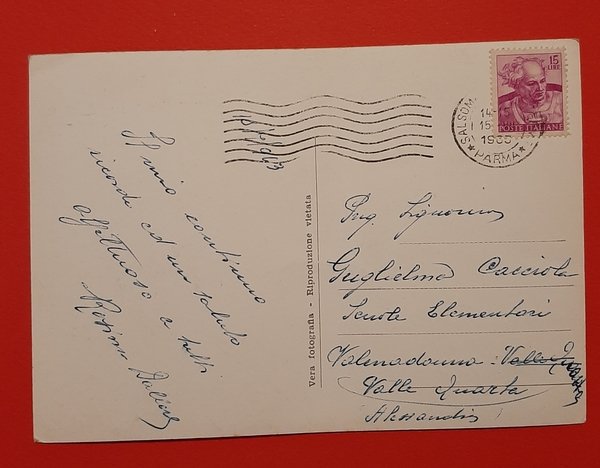 15
LIRE
POSTE ITALIANE
SALSOM
14-15
15
1963
PARMA
Il mio continuo
ricordo ed un saluto
affettuoso a tutti
Rosina
Vera fotografia - Riproduzione vietata
Guglielmo Cacciola
Scuole Elementari
Valmadonna Valle Quarta
Valle Quarta
Alessandria